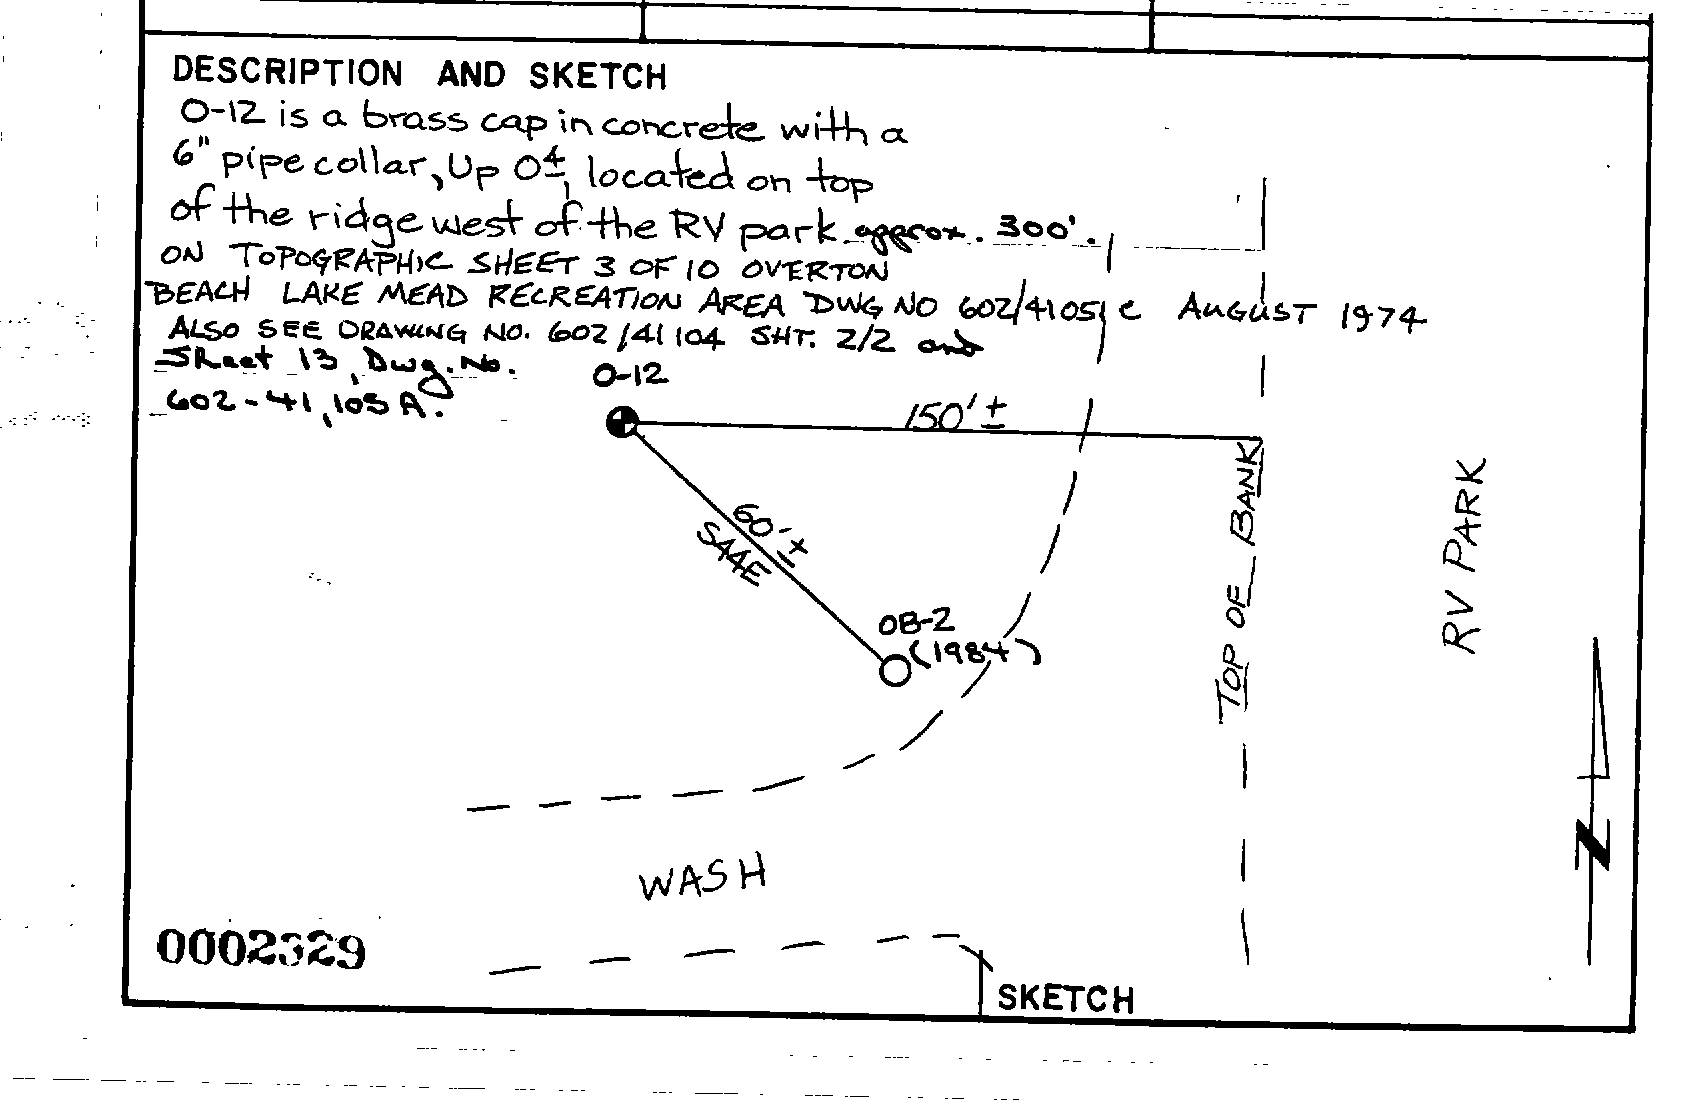 DESCRIPTION AND SKETCH
O-12 is a brass cap in concrete with a
6" pipe collar, Up 0⁴±, located on top
of the ridge west of the RV park approx. 300'.
ON TOPOGRAPHIC SHEET 3 OF 10 OVERTON
BEACH LAKE MEAD RECREATION AREA DWG NO 602/41051 C AUGUST 1974
ALSO SEE DRAWING NO. 602/41104 SHT. 2/2 and
Sheet 13, Dwg. No.
602-41,105A.
O-12
150'±
60'±
S44E
OB-2
(1984)
TOP OF BANK
RV PARK
N
WASH
0002329
SKETCH